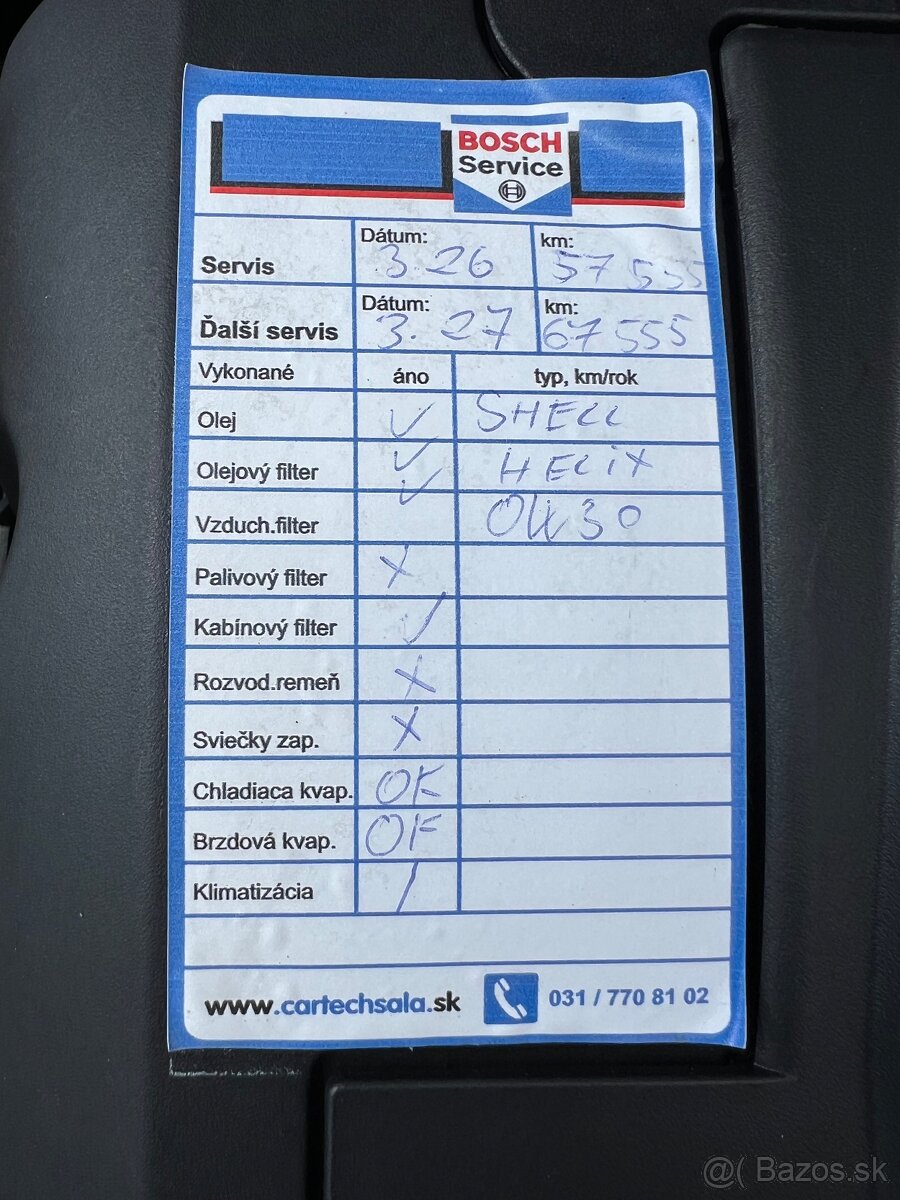 BOSCH
Service
Servis Dátum: 3.26 km: 57 555
Ďalší servis Dátum: 3.27 km: 67 555
Vykonané áno typ, km/rok
Olej ✓ SHELL
Olejový filter ✓ HELIX
Vzduch.filter ✓ 0W30
Palivový filter X
Kabínový filter ✓
Rozvod.remeň X
Sviečky zap. X
Chladiaca kvap. OK
Brzdová kvap. OK
Klimatizácia /
www.cartechsala.sk 031 / 770 81 02
@( Bazos.sk